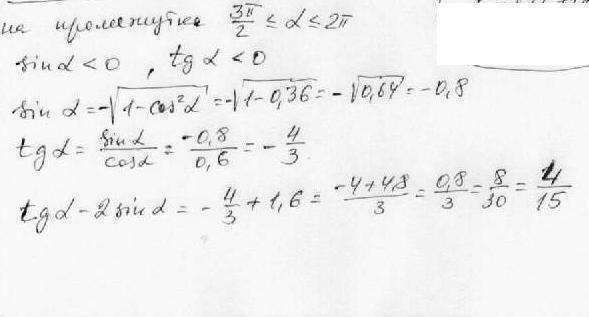 на промежутке 3π/2 ≤ α ≤ 2π
sin α < 0 , tg α < 0
sin α = -√(1-cos²α) = -√(1-0,36) = -√0,64 = -0,8
tg α = sin α/cos α = -0,8/0,6 = -4/3
tg α - 2 sin α = -4/3 + 1,6 = (-4+4,8)/3 = 0,8/3 = 8/30 = 4/15